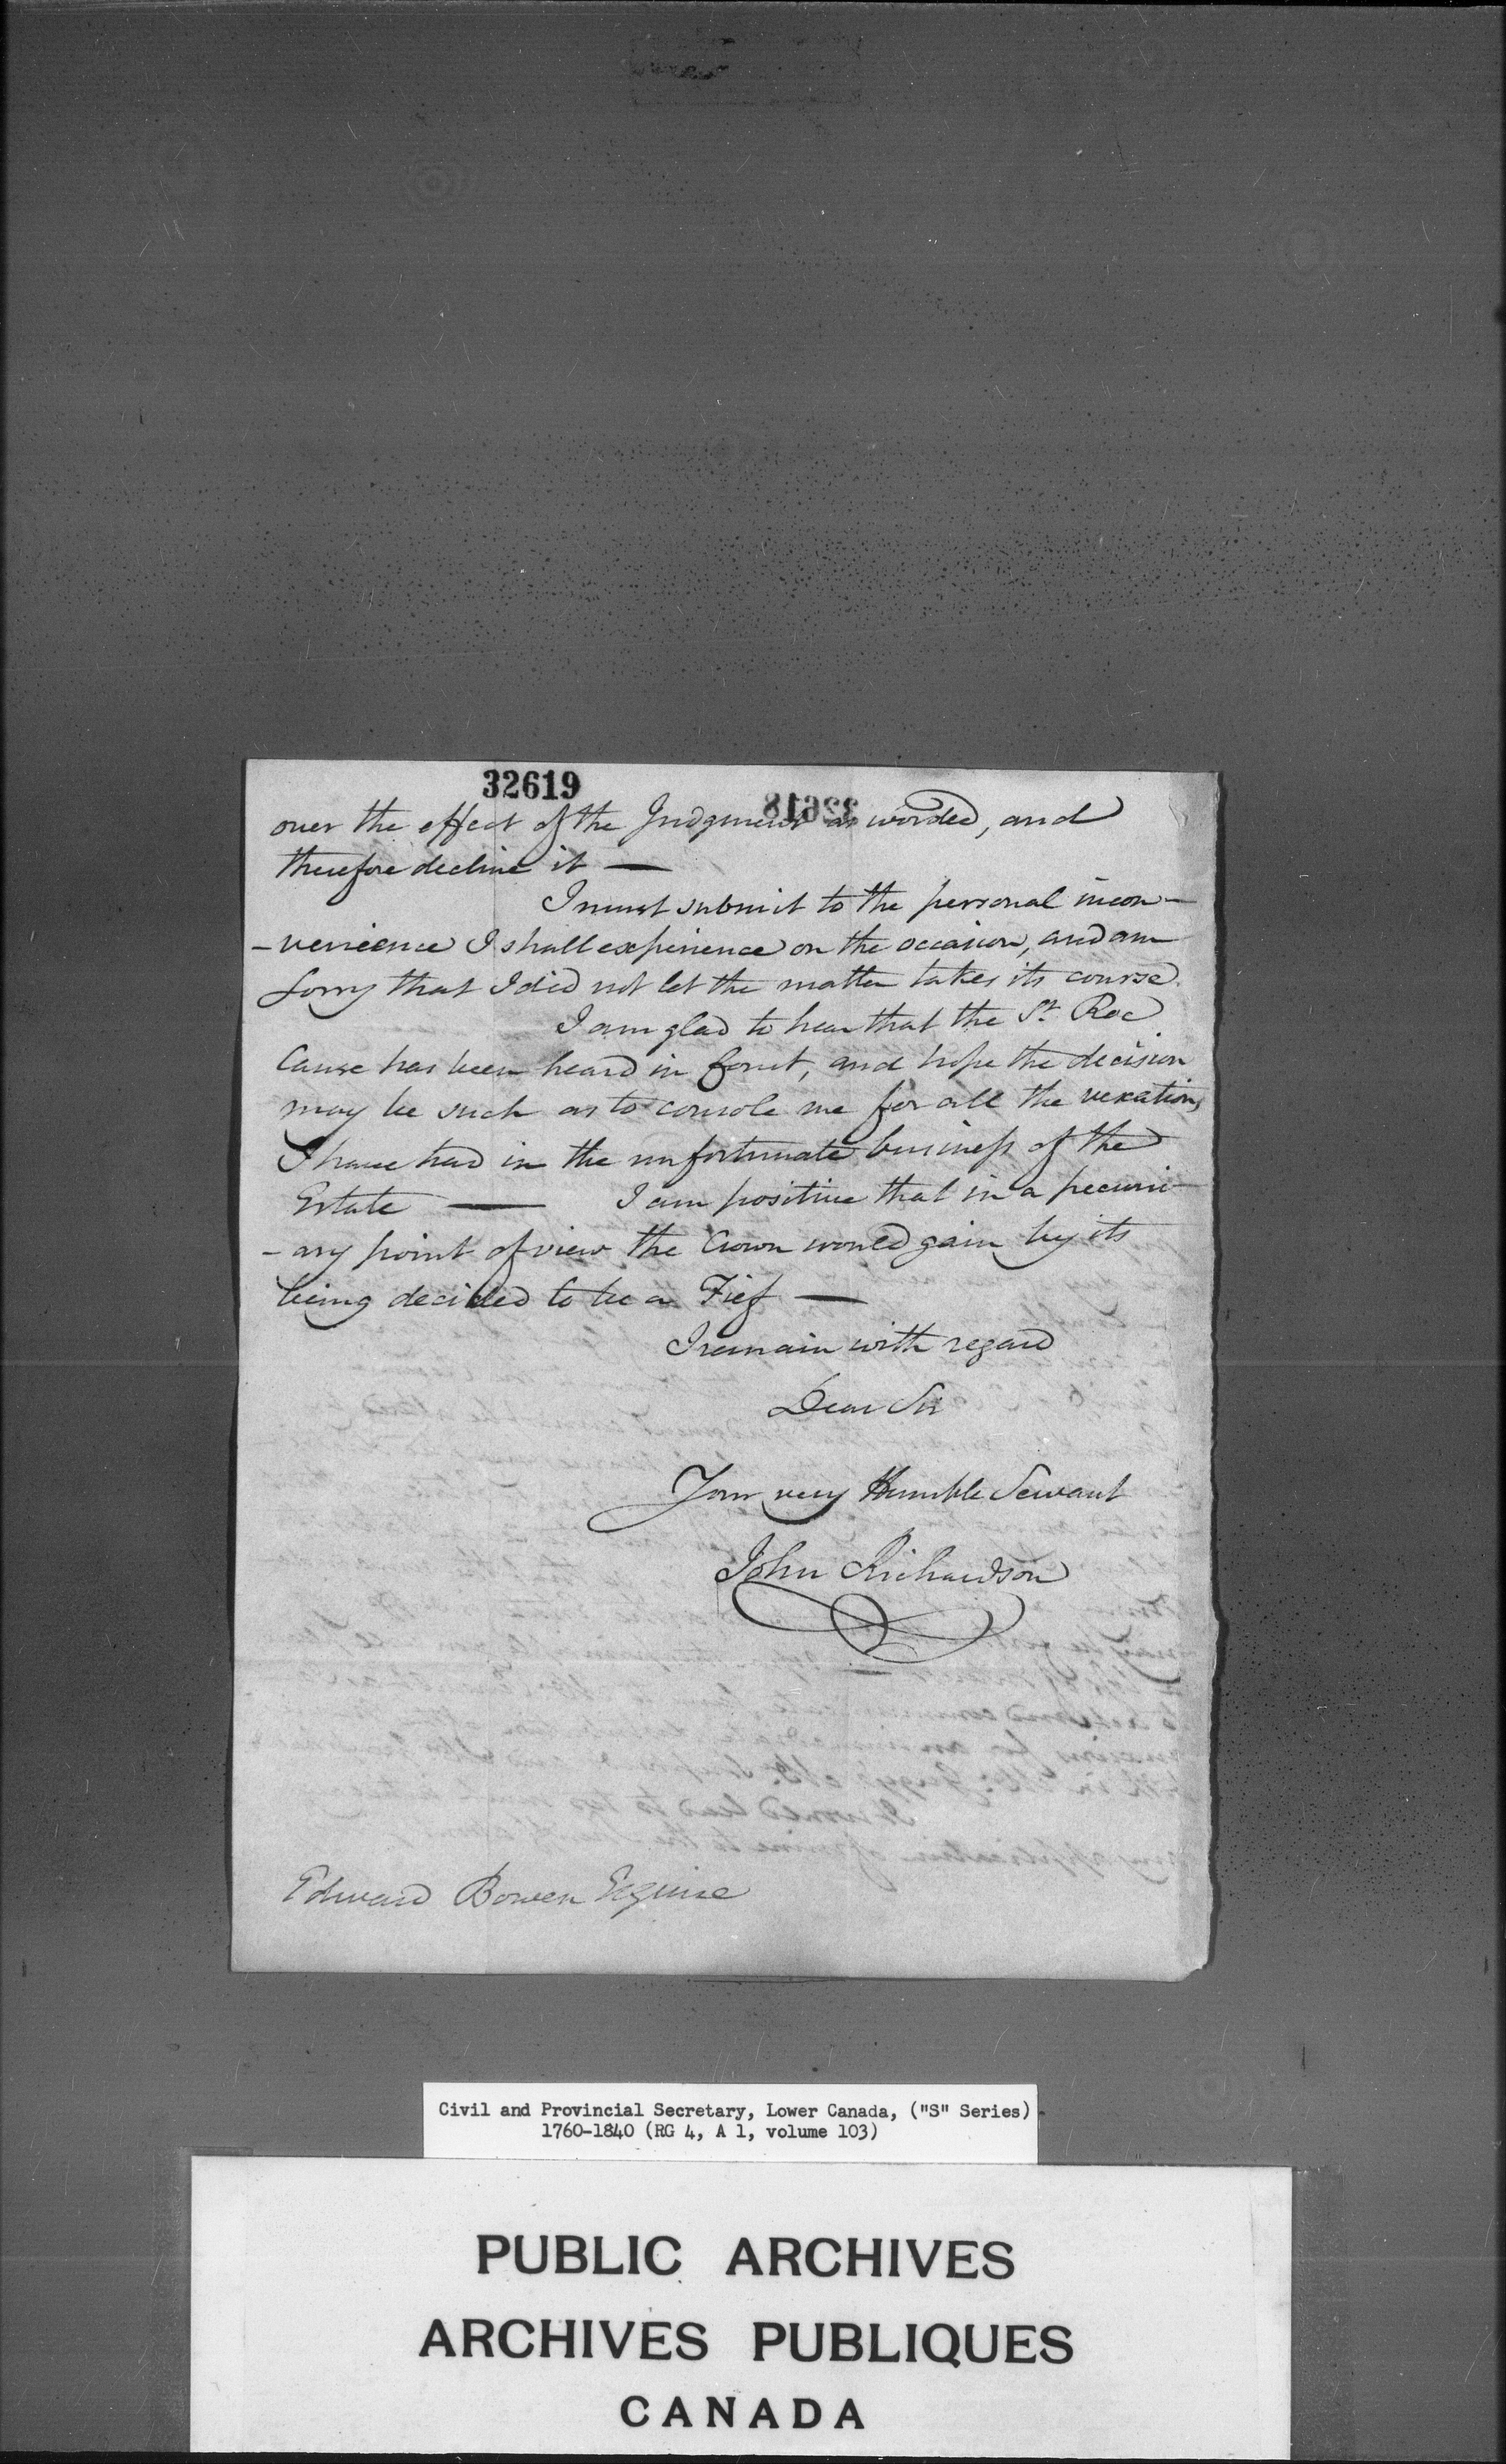 32619
over the effect of the Judgment as worded, and
therefore decline it —
I must submit to the personal incon-
-venience I shall experience on the occasion, and am
sorry that I did not let the matter takes its course.
I am glad to hear that the St. Roc
Cause has been heard in Court, and hope the decision
may be such as to console me for all the vexations
I have had in the unfortunate business of the
Estate — I am positive that in a pecuni-
-ary point of view the Crown would gain by its
being decided to be a Fief —
I remain with regard
Dear Sir
Your very Humble Servant
John Richardson
Edward Bowen Esquire
Civil and Provincial Secretary, Lower Canada, ("S" Series)
1760-1840 (RG 4, A 1, volume 103)
PUBLIC ARCHIVES
ARCHIVES PUBLIQUES
CANADA